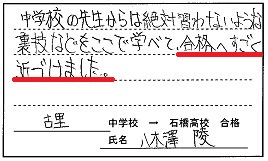 中学校の先生からは絶対習わないような
裏技などをここで学べて、合格へすごく
近づけました。
古里 中学校 → 石橋高校 合格
氏名 八木澤 陵